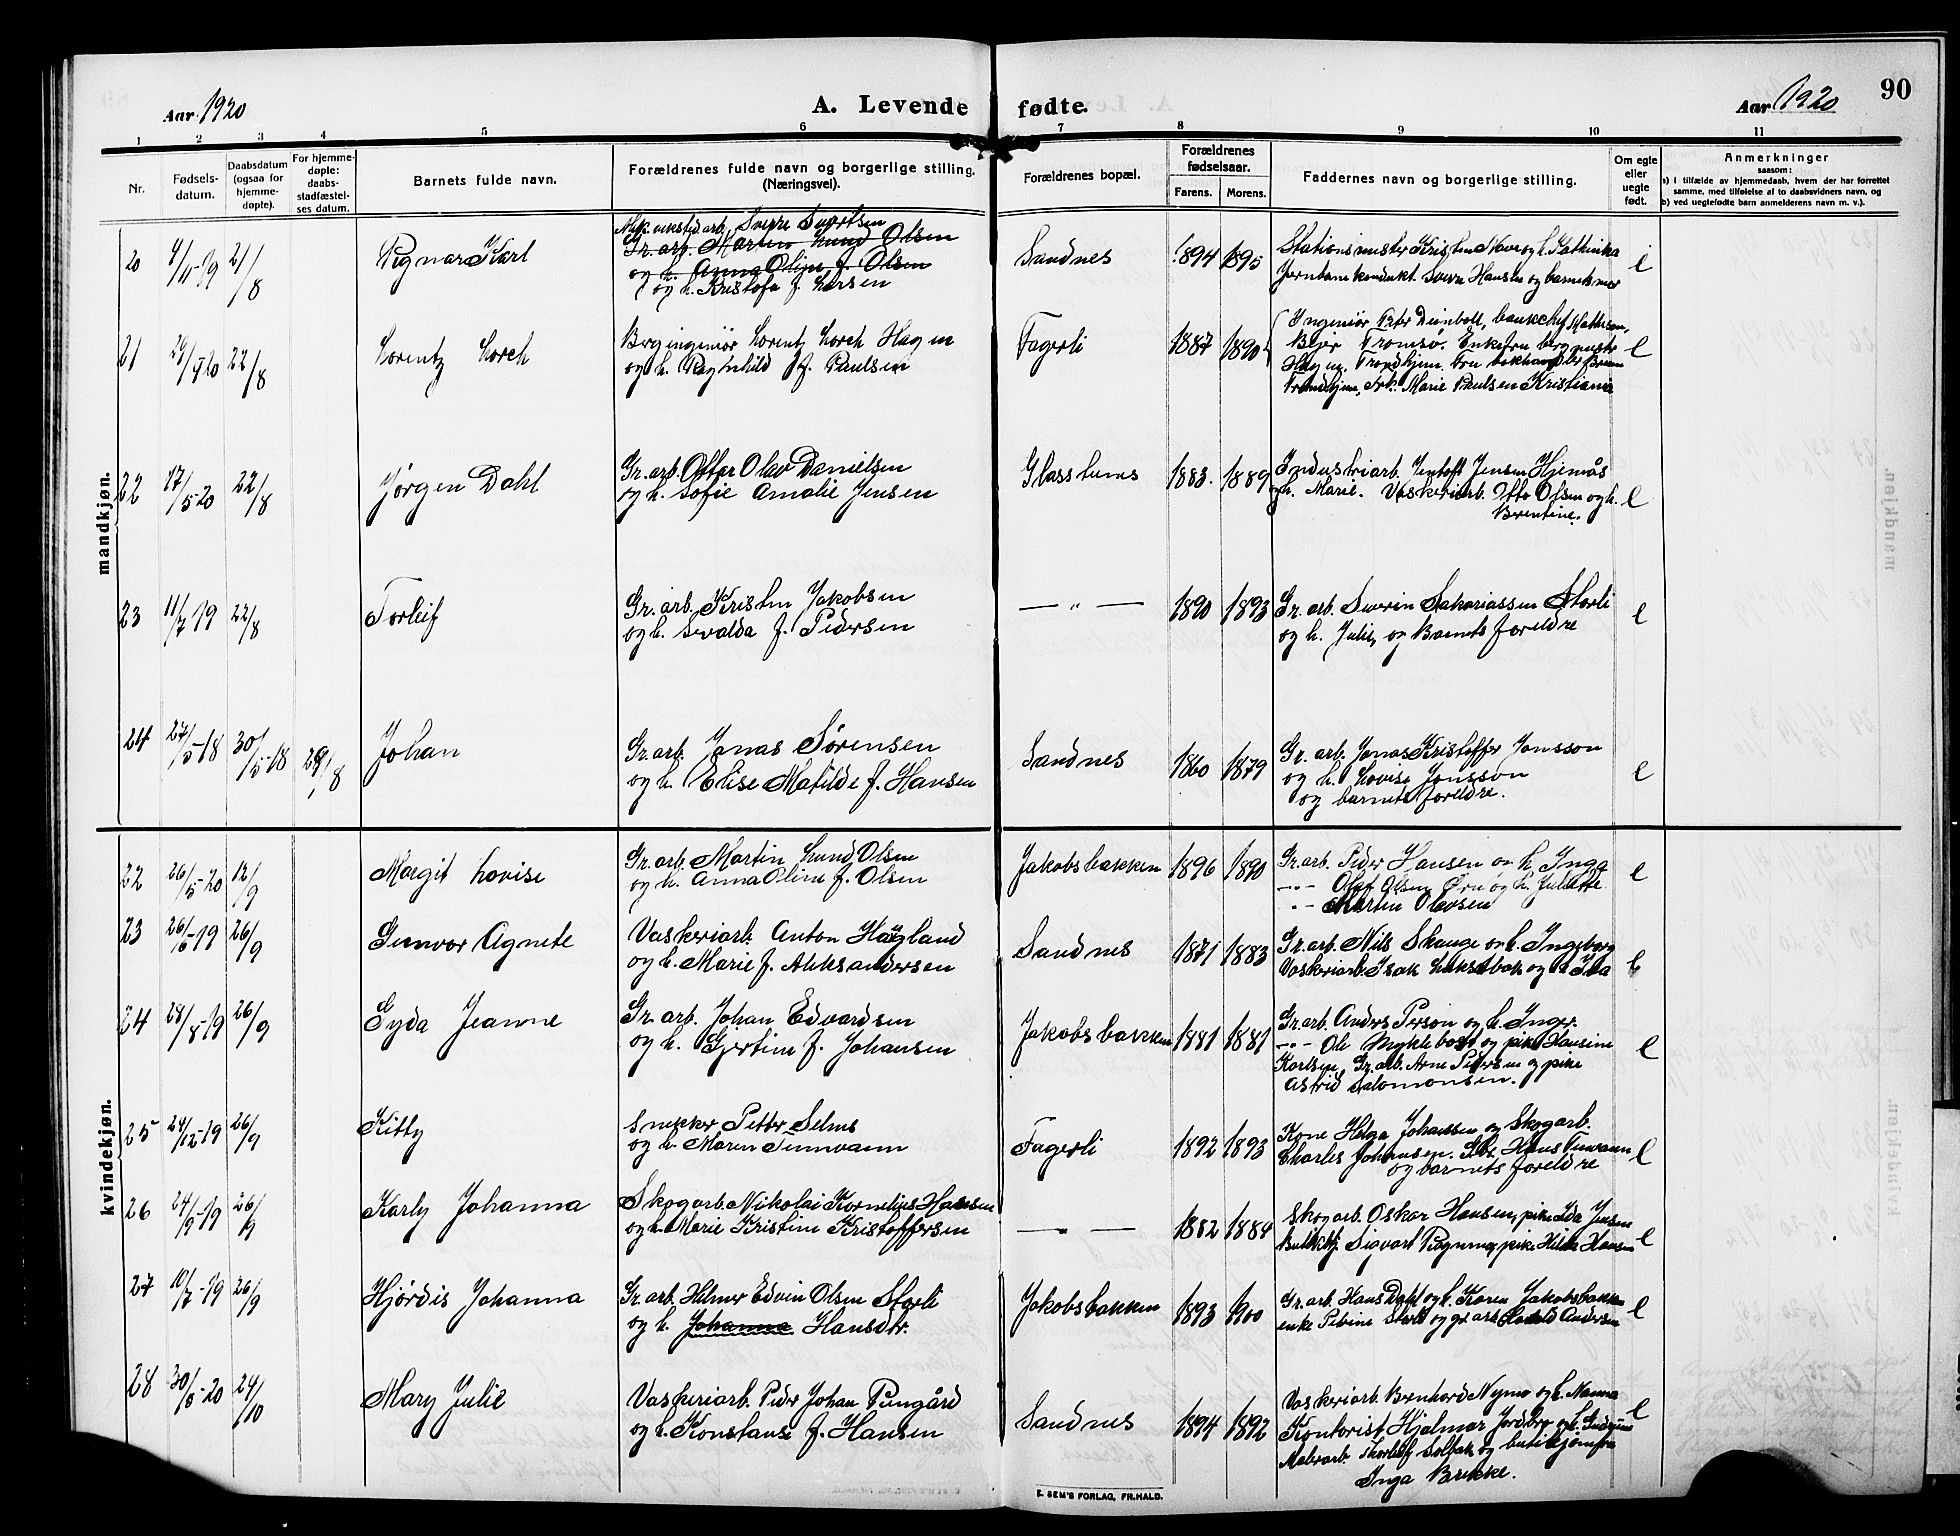 Aar 1920
A. Levende fødte.
Aar 1920
90
1 2 3 4 5 6 7 8 9 10 11
Nr.
Fødsels-
datum.
Daabsdatum
(ogsaa for
hjemme-
døpte).
For hjemme-
døpte:
daabs-
stadfæstel-
ses datum.
Barnets fulde navn.
Forældrenes fulde navn og borgerlige stilling.
(Næringsvei).
Forældrenes bopæl.
Forældrenes
fødselsaar.
Farens. Morens.
Faddernes navn og borgerlige stilling.
Om egte
eller
uegte
født.
Anmerkninger
saasom:
a) i tilfælde av hjemmedaab, hvem der har forrettet
samme, med tilføielse af to daabsvidners navn, og
b) ved uegtefødte barn anmelderens navn m. v.).
mandkjøn.
20 4/11-19 21/8 Ragnar Karl
Sverre
Gr. arb. Martin Lund Olsen
og h. Anna Oline f. Olsen
og h. Kristofa f. Larsen
Sandnes 1894 1895
Stationsmester Kristen Move og h. Kathinka
Jernbanekondukt. Hansen og barnets mor
e
21 22/8 Lorentz Lorch
Bergingeniør Lorentz Lorch Hagen
og h. Ragnhild f. Paulsen
Fagerli 1887 1890
Ingeniør Peter Deinboll, bankchef Mathisen,
Tromsø. Enkefru bergmester
Hagen, Trondhjem. Fru
Trondhjem, Frk. Marie Paulsen Kristiania
e
22 17/5-20 22/8 Jørgen Dahl
Gr. arb. Ottar Olav Danielsen
og h. Sofie Amalie Jensen
Glasstunes 1883. 1889
Industriarb. Jentoft Jensen Hjemås
og h. Marie. Vaskeriarb. Otto Olsen og h.
Berntine.
e
23 11/7-19 22/8 Torleif
Gr. arb. Kristen Jakobsen
og h. Sevalda f. Pedersen
— „ — 1890 1893
Gr. arb. Severin Sakariassen Storli
og h. Julie, og Barnets foreldre
e
24 27/5-18 30/5-18 29/8 Johan
Gr. arb. Jonas Sørensen
og h. Elise Matilde f. Hansen
Sandnes 1860 1879
Gr. arb. Jonas Kristoffer Jonsson
og h. Lovise Jonsson
og barnets foreldre.
e
kvindekjøn.
22 26/5-20 12/9 Margit Lovise
Gr. arb. Martin Lund Olsen
og h. Anna Oline f. Olsen
Jakobsbakken 1896 1890
Gr. arb. Peder Hansen og h. Inga
-„- Olaf Olsen Ørn og h. Juliette
-„- Martin Olevsen
e
23 26/6-19 26/9 Gunvor Agnete
Vaskeriarb. Anton Hagland
og h. Marie f. Aleksandersen
Sandnes 1871 1883
Gr. arb. Nils Skauge og h. Ingeborg
Vaskeriarb. Isak og h. Ida
e
24 28/8-19 26/9 Gyda Jeanne
Gr. arb. Johan Edvardsen
og h. Gjertine f. Johansen
Jakobsbakken 1881 1881
Gr. arb. Anders Person og h. Inger.
-„- Ole Myklebost og pike Hansine
Karlsen, Gr. arb. Arne Pedersen og pike
Astrid Salomonsen.
e
25 24/12-19 26/9 Kitty
Snekker Petter Selnes
og h. Maren Finnvann
Fagerli 1892 1893
Kone Helga Johansen og Skogarb.
Charles Johansen. Hans Finvann
og barnets foreldre
e
26 24/9-19 26/9 Karly Johanna
Skogarb. Nikolai Kornelius Hansen
og h. Marie Kristine Kristoffersen
— — 1882 1884
Skogarb. Oskar Hansen, pike Ida Jensen
Sigvart pike Hilda Hansen
e
27 10/7-19 26/9 Hjørdis Johanna
Gr. arb. Helmer Edvin Olsen Storli
og h. Johanna Hansdtr.
Jakobsbakken 1893 1900
Gr. arb. Hans Dahl og h. Karen Jakobsbakken
enke Petrine Storli og gr. arb. Harald Andersen
e
28 30/8-20 24/10 Mary Julie
Vaskeriarb. Peder Johan Pungård
og h. Konstanse f. Hansen
Sandnes 1894 1892
Vaskeriarb. Bernhard Nymo og h. Nanna
Kontorist Hjalmar Jordbro og h. Gudrun
Malerarb. Solbak og butikjomfru
Inga Brekke.
e
E. SEM'S FORLAG, FR.HALD.